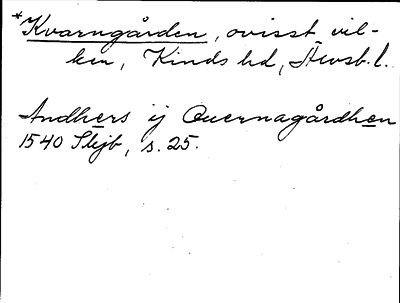 *Kvarngården, ovisst vil-
ken, Kinds hd, Älvsb. l.
Andhers ij Quernagårdhen
1540 Stjb, s. 25.